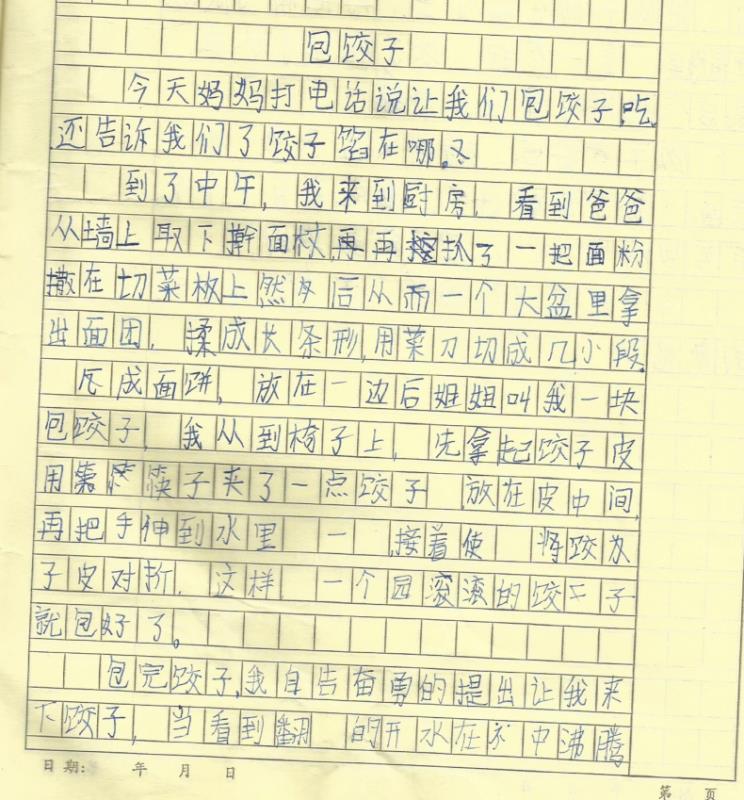 包饺子
今天妈妈打电话说让我们包饺子吃,
还告诉我们了饺子馅在哪。
到了中午,我来到厨房,看到爸爸
从墙上取下擀面杖,再扒了一把面粉
撒在切菜板上然后从而一个大盆里拿
出面团,揉成长条形,用菜刀切成几小段,
成面饼,放在一边后姐姐叫我一块
包饺子,我从到椅子上,先拿起饺子皮
用筷子夹了一点饺子 放在皮中间,
再把手伸到水里 一 接着使 将饺
子皮对折,这样,一个园滚滚的饺子
就包好了。
包完饺子,我自告奋勇的提出让我来
下饺子,当看到翻 的开水在 中沸腾
日期: 年 月 日
第 页